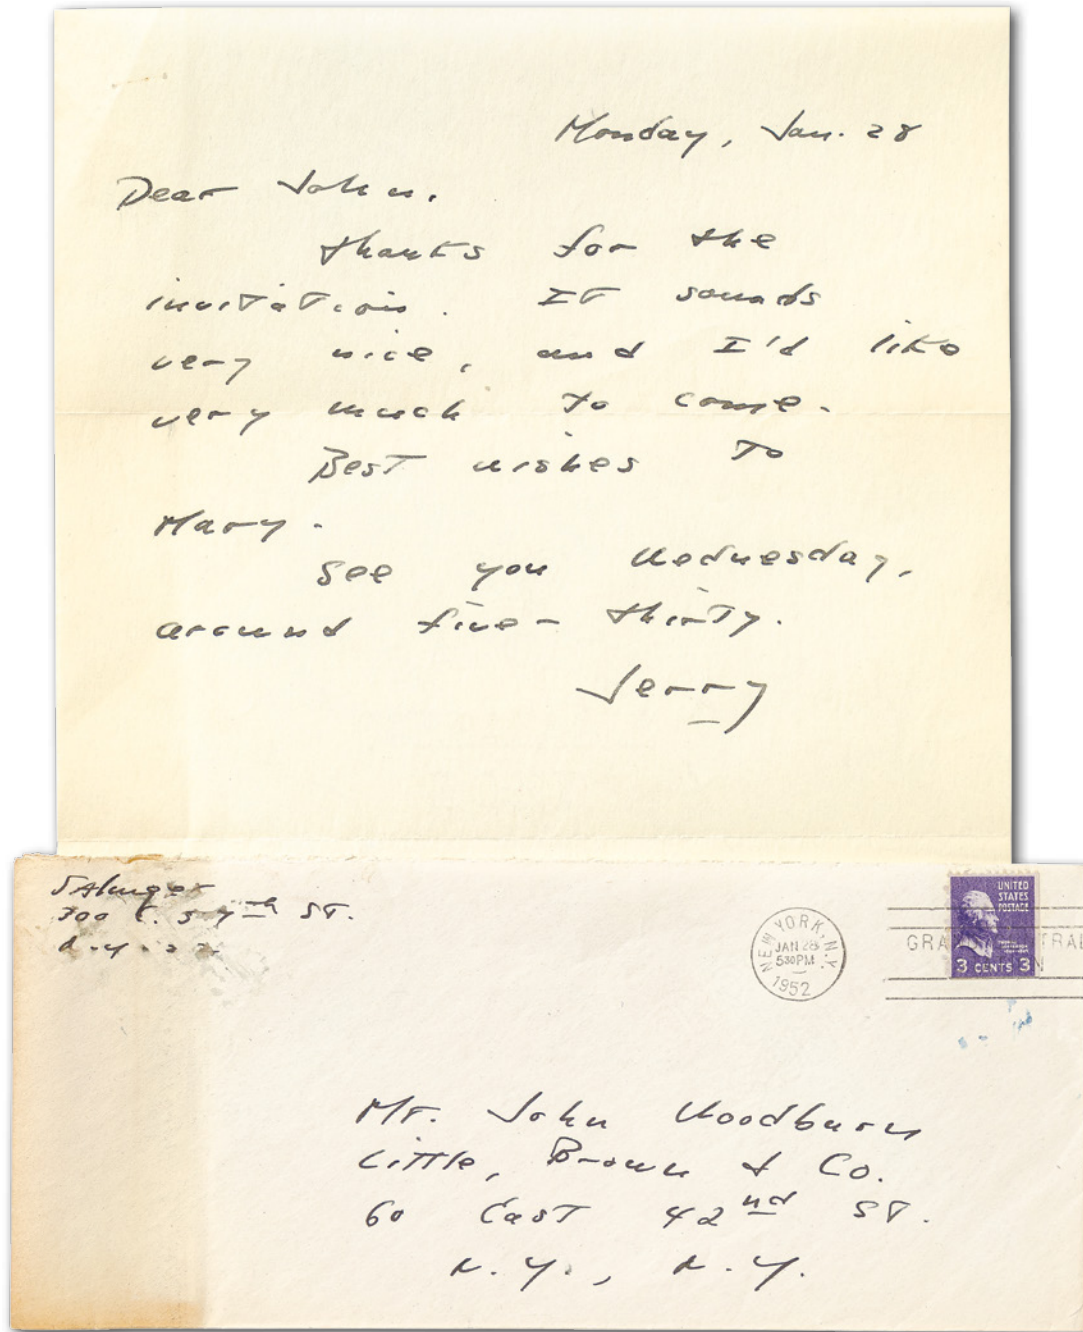 Monday, Jan. 28
Dear John,
Thanks for the
invitation. It sounds
very nice, and I'd like
very much to come.
Best wishes to
Mary.
See you Wednesday,
around five-thirty.
Jerry
Salinger
300 E. 57th ST.
N.Y. 22
NEW YORK, N.Y.
JAN 28
530PM
1952
GRA TRAL
N
UNITED
STATES
POSTAGE
3 CENTS 3
Mr. John Woodburn
Little, Brown & Co.
60 East 42nd ST.
N.Y., N.Y.